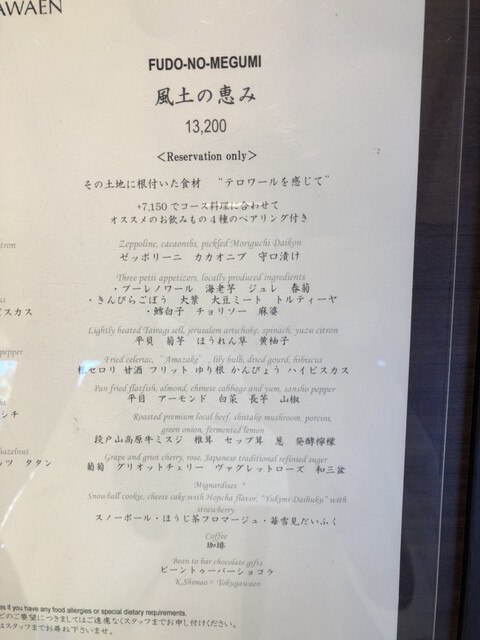 AWAEN
FUDO-NO-MEGUMI
風土の恵み
13,200
<Reservation only>
その土地に根付いた食材 “テロワールを感じて”
+7,150 でコース料理に合わせて
オススメのお飲みもの4種のペアリング付き
Zeppoline, cacaonibs, pickled Moriguchi Daikon
ゼッポリーニ カカオニブ 守口漬け
Three petit appetizers, locally produced ingredients
・ブーレノワール 海老芋 ジュレ 春菊
・きんぴらごぼう 大葉 大豆ミート トルティーヤ
・鱈白子 チョリソー 麻婆
Lightly heated Tairagi sell, jerusalem artichoke, spinach, yuzu citron
平貝 菊芋 ほうれん草 黄柚子
Fried celeriac, “Amazake”, lily bulb, dried gourd, hibiscus
根セロリ 甘酒 フリット ゆり根 かんぴょう ハイビスカス
Pan fried flatfish, almond, chinese cabbage and yum, sansho pepper
平目 アーモンド 白菜 長芋 山椒
Roasted premium local beef, shiitake mushroom, porcini,
green onion, fermented lemon
段戸山高原牛ミスジ 椎茸 セップ茸 葱 発酵檸檬
Grape and griot cherry, rose, Japanese traditional refinied suger
葡萄 グリオットチェリー ヴァグレットローズ 和三盆
Mignardises
Snowball cookie, cheese cake with Hojicha flavor, “Yukimi Daihuku” with
strawberry
スノーボール・ほうじ茶フロマージュ・苺雪見だいふく
Coffee
珈琲
Bean to bar chocolate gifts
ビーントゥーバーショコラ
K.Shimao × Tokugawaen
citron
ビスカス
pepper
シチ
hazelnut
ッツ タタン
es if you have any food allergies or special dietary requirements.
どのご要望につきましてはご遠慮なくスタッフまでお申し付けください。
はスタッフまでお尋ね下さいませ。